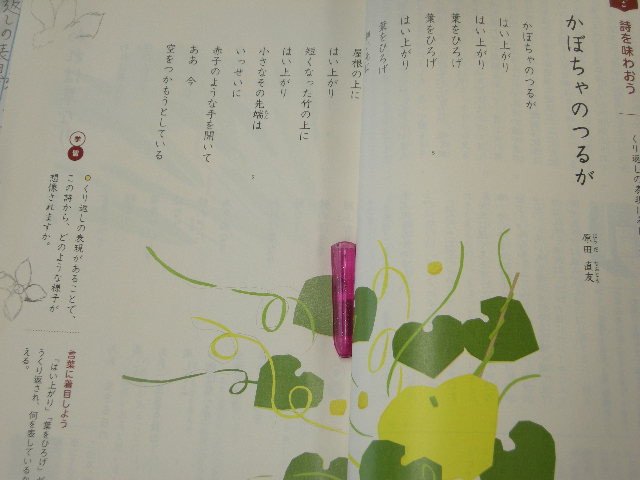 詩を味わおう
くり返しの表現
かぼちゃのつるが
はらだ なおとも
原田 直友
かぼちゃのつるが
はい上がり
はい上がり
葉をひろげ
葉をひろげ
はい上がり
葉をひろげ
屋根の上に
はい上がり
短くなった竹の上に
はい上がり
小さなその先端は
いっせいに
赤子のような手を開いて
ああ 今
空をつかもうとしている
5
5
学習
くり返しの表現があることで、
この詩から、どのような様子が
想像されますか。
言葉に着目しよう
「はい上がり」「葉をひろげ」が
うくり返され、何を表しているか
える。